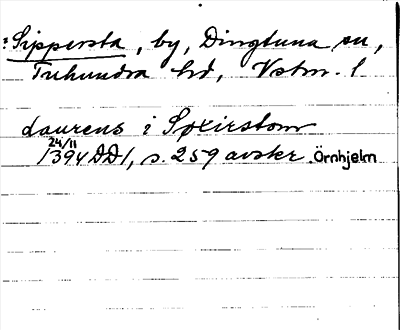 Sippersta, by, Dingtuna sn,
Tuhundra hd, Vstm. l
Laurens i Spxirstom
24/11
1394 DD1, s. 259 avskr. Örnhjelm